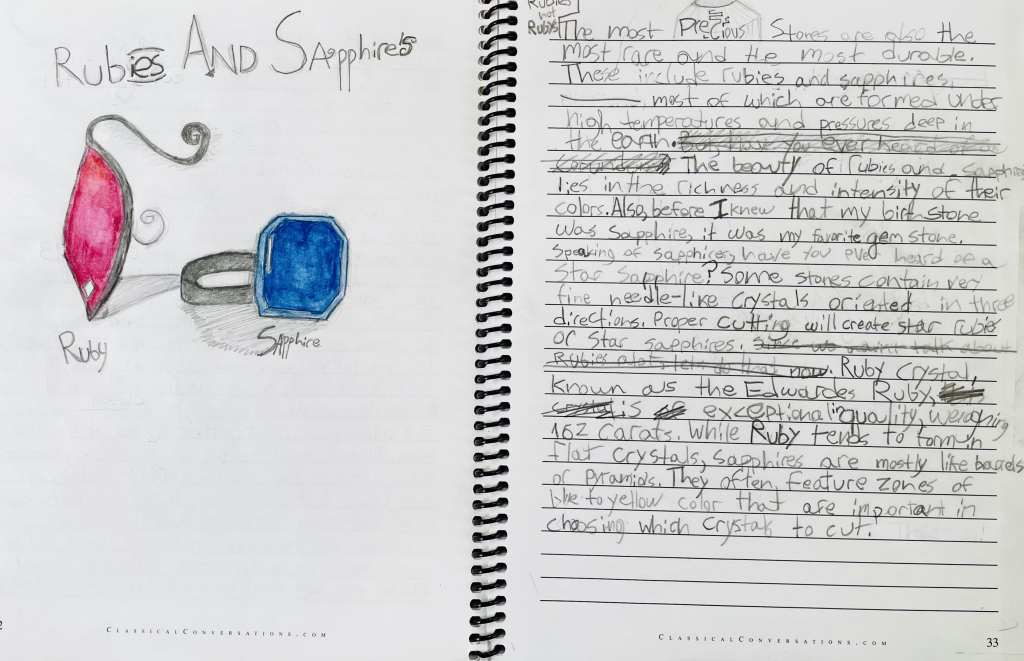 Rubies AND Sapphires
Ruby
Sapphire
2
ClassicalConversations.com
Rubies
not
Rubys
The most Precious Stones are also the
most rare and the most durable.
These include rubies and sapphires,
most of which are formed under
high temperatures and pressures deep in
the earth. But, have you ever heard of a
The beauty of rubies and sapphires
lies in the richness and intensity of their
colors. Also, before I knew that my birthstone
was sapphire, it was my favorite gem stone.
Speaking of sapphires, have you ever heard of a
Star Sapphire? Some stones contain very
fine needle-like crystals oriented in three
directions. Proper cutting will create star rubies
or star sapphires. Since we talk about
Rubies a lot, let's do that now. Ruby Crystal,
known as the Edwardes Ruby,
is exceptional in quality, weighing
162 carats. While Ruby tends to form in
flat crystals, sapphires are mostly like barrels
or pyramids. They often feature zones of
blue to yellow color that are important in
choosing which crystals to cut!
ClassicalConversations.com
33